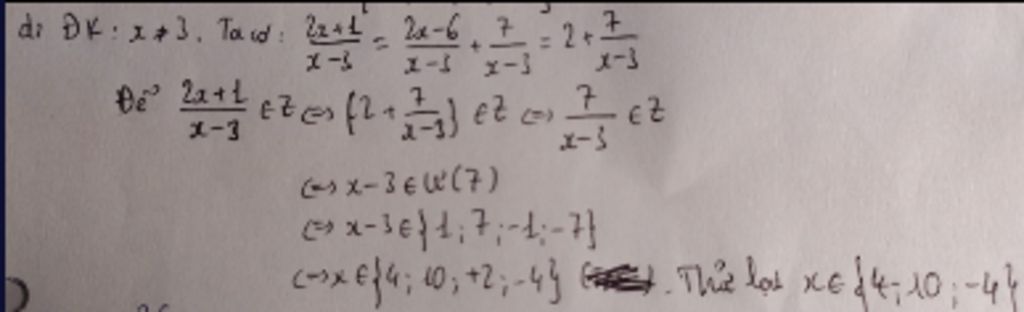 d, ĐK: x ≠ 3. Ta có: (2x+1)/(x-3) = (2x-6)/(x-3) + 7/(x-3) = 2 + 7/(x-3)
Để (2x+1)/(x-3) ∈ Z ⇔ {2 + 7/(x-3)} ∈ Z ⇔ 7/(x-3) ∈ Z
⇔ x-3 ∈ Ư(7)
⇔ x-3 ∈ {1; 7; -1; -7}
⇔ x ∈ {4; 10; +2; -4}. Thử lại x ∈ {4; 10; -4}